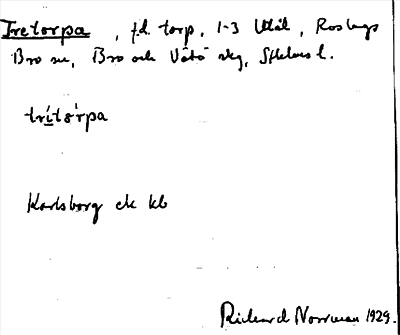 Tretorpa, f.d. torp, 1-3 Utål, Roslags
Bro sn, Bro och Vätö skg, Sthlms l.
trítårpa
Karlsborg ek kb
Rickard Norrman 1929.